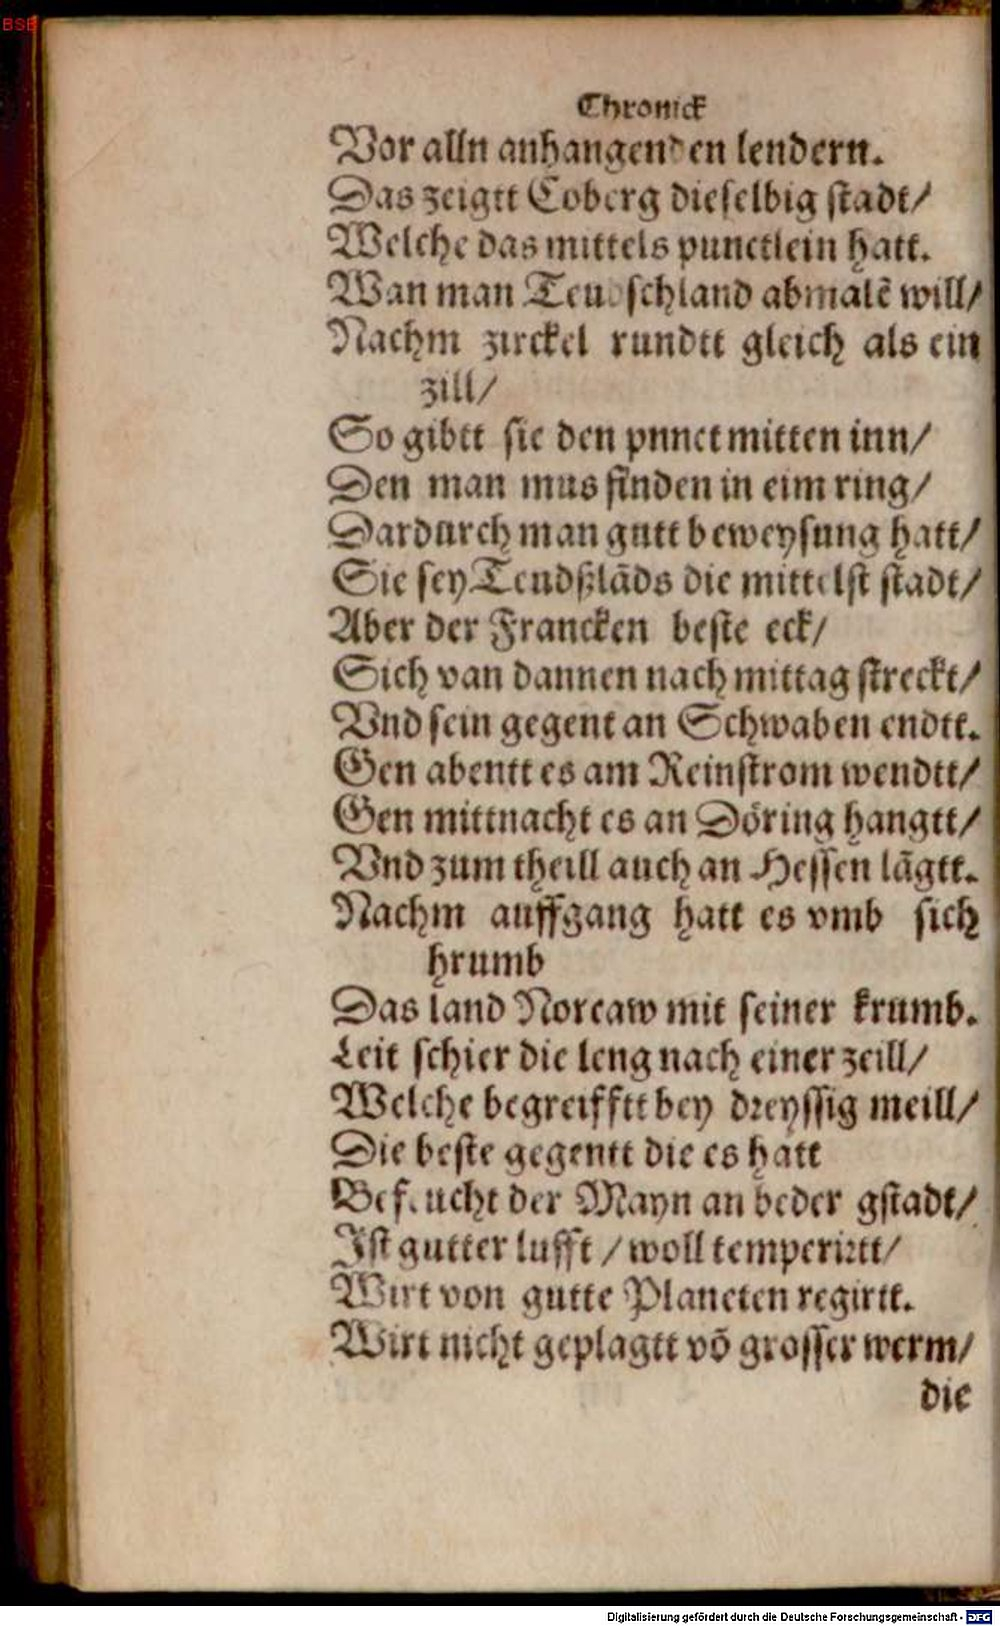 BSB
Chronick
Vor alln anhangenden lendern.
Das zeigtt Coberg dieselbig stadt/
Welche das mittels punctlein hatt.
Wan man Teu schland abmalẽ will/
Nachm zirckel rundtt gleich als ein
zill/
So gibtt sie den pnnct mitten inn/
Den man mus finden in eim ring/
Dardurch man gutt beweysung hatt/
Sie sey Teudßlãds die mittelst stadt/
Aber der Francken beste eck/
Sich van dannen nach mittag streckt/
Vnd sein gegent an Schwaben endtt.
Gen abentt es am Reinstrom wendtt/
Gen mittnacht es an Döring hangtt/
Vnd zum theill auch an Hessen lãgtt.
Nachm auffgang hatt es vmb sich
hrumb
Das land Norcaw mit seiner krumb.
Leit schier die leng nach einer zeill/
Welche begreifftt bey dreyssig meill/
Die beste gegentt die es hatt
Befeucht der Mayn an beder gstadt/
Ist gutter lufft / woll temperirtt/
Wirt von gutte Planeten regirtt.
Wirt nicht geplagtt võ grosser werm/
die
Digitalisierung gefördert durch die Deutsche Forschungsgemeinschaft - DFG